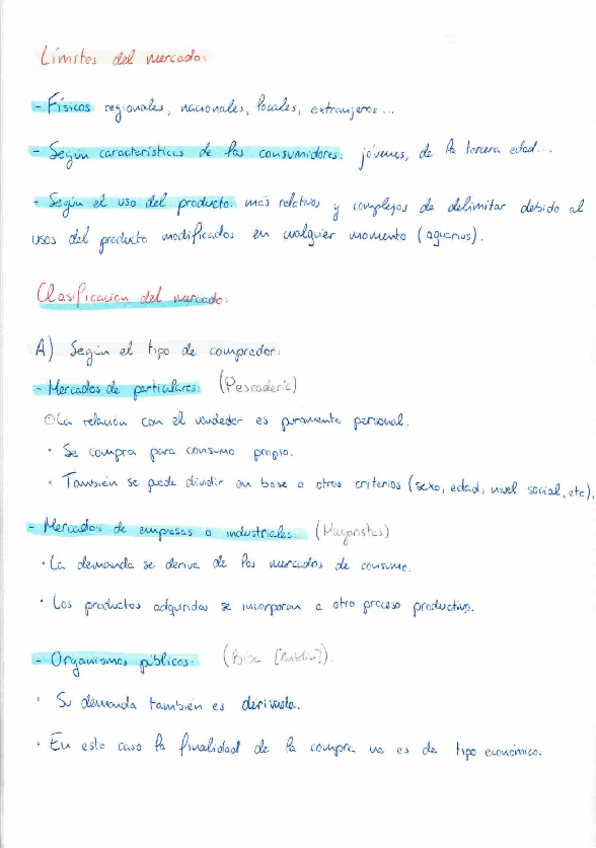 Límites del mercado:
- Físicos: regionales, nacionales, locales, extranjeros...
- Según características de los consumidores: jóvenes, de la tercera edad...
- Según el uso del producto: más relativos y complejos de delimitar debido al
usos del producto modificados en cualquier momento (aquarius).
Clasificación del mercado:
A) Según el tipo de comprador:
- Mercados de particulares: (Pescadería)
· La relación con el vendedor es puramente personal.
· Se compra para consumo propio.
· También se puede dividir en base a otros criterios (sexo, edad, nivel social, etc).
- Mercados de empresas o industriales: (Mayoristas)
· La demanda se deriva de los mercados de consumo.
· Los productos adquiridos se incorporan a otro proceso productivo.
- Organismos públicos:
· Su demanda también es derivada.
· En este caso la finalidad de la compra no es de tipo económico.